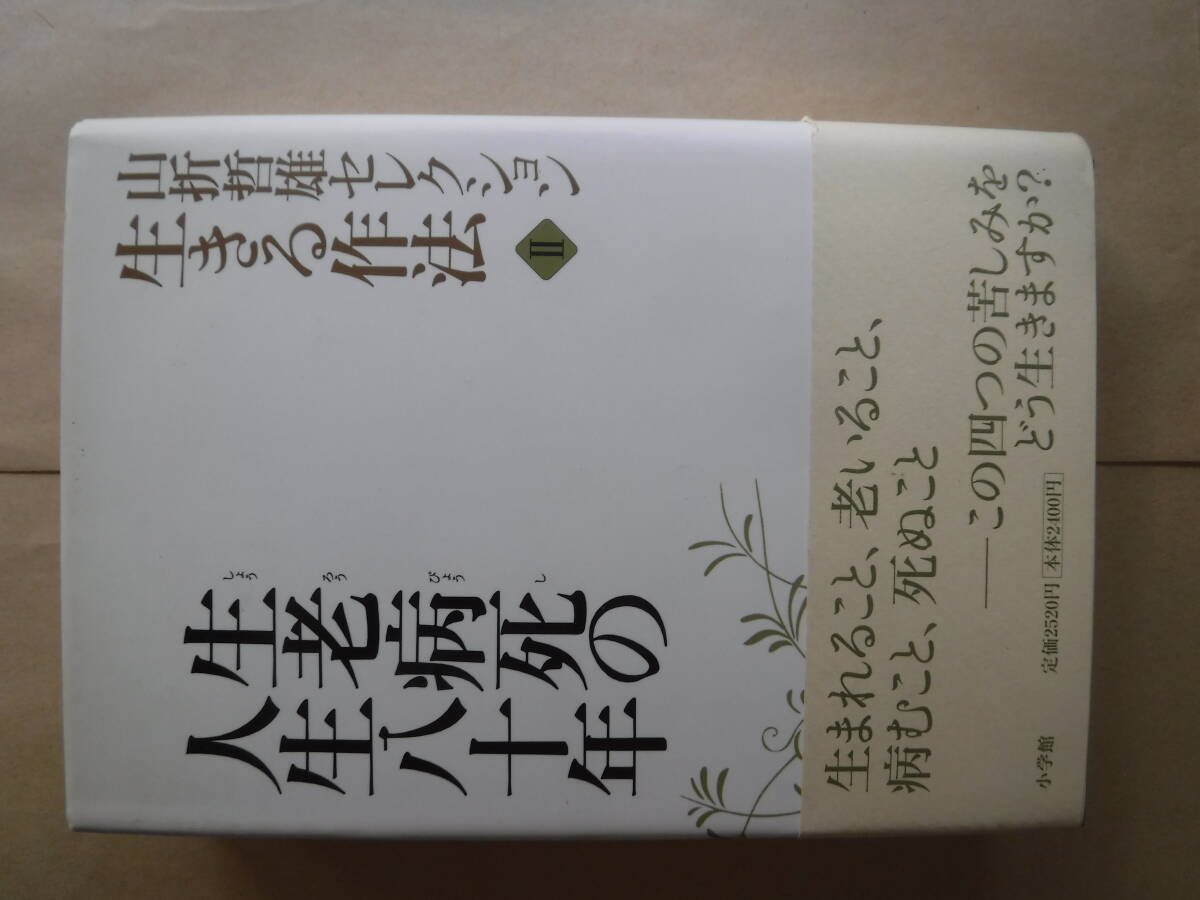 山折哲雄セレクション
生きる作法
II
しょう ろう びょう し
生老病死の
人生八十年
生まれること、老いること、
病むこと、死ぬこと
――この四つの苦しみを
どう生きますか?
小学館
定価2520円 本体2400円